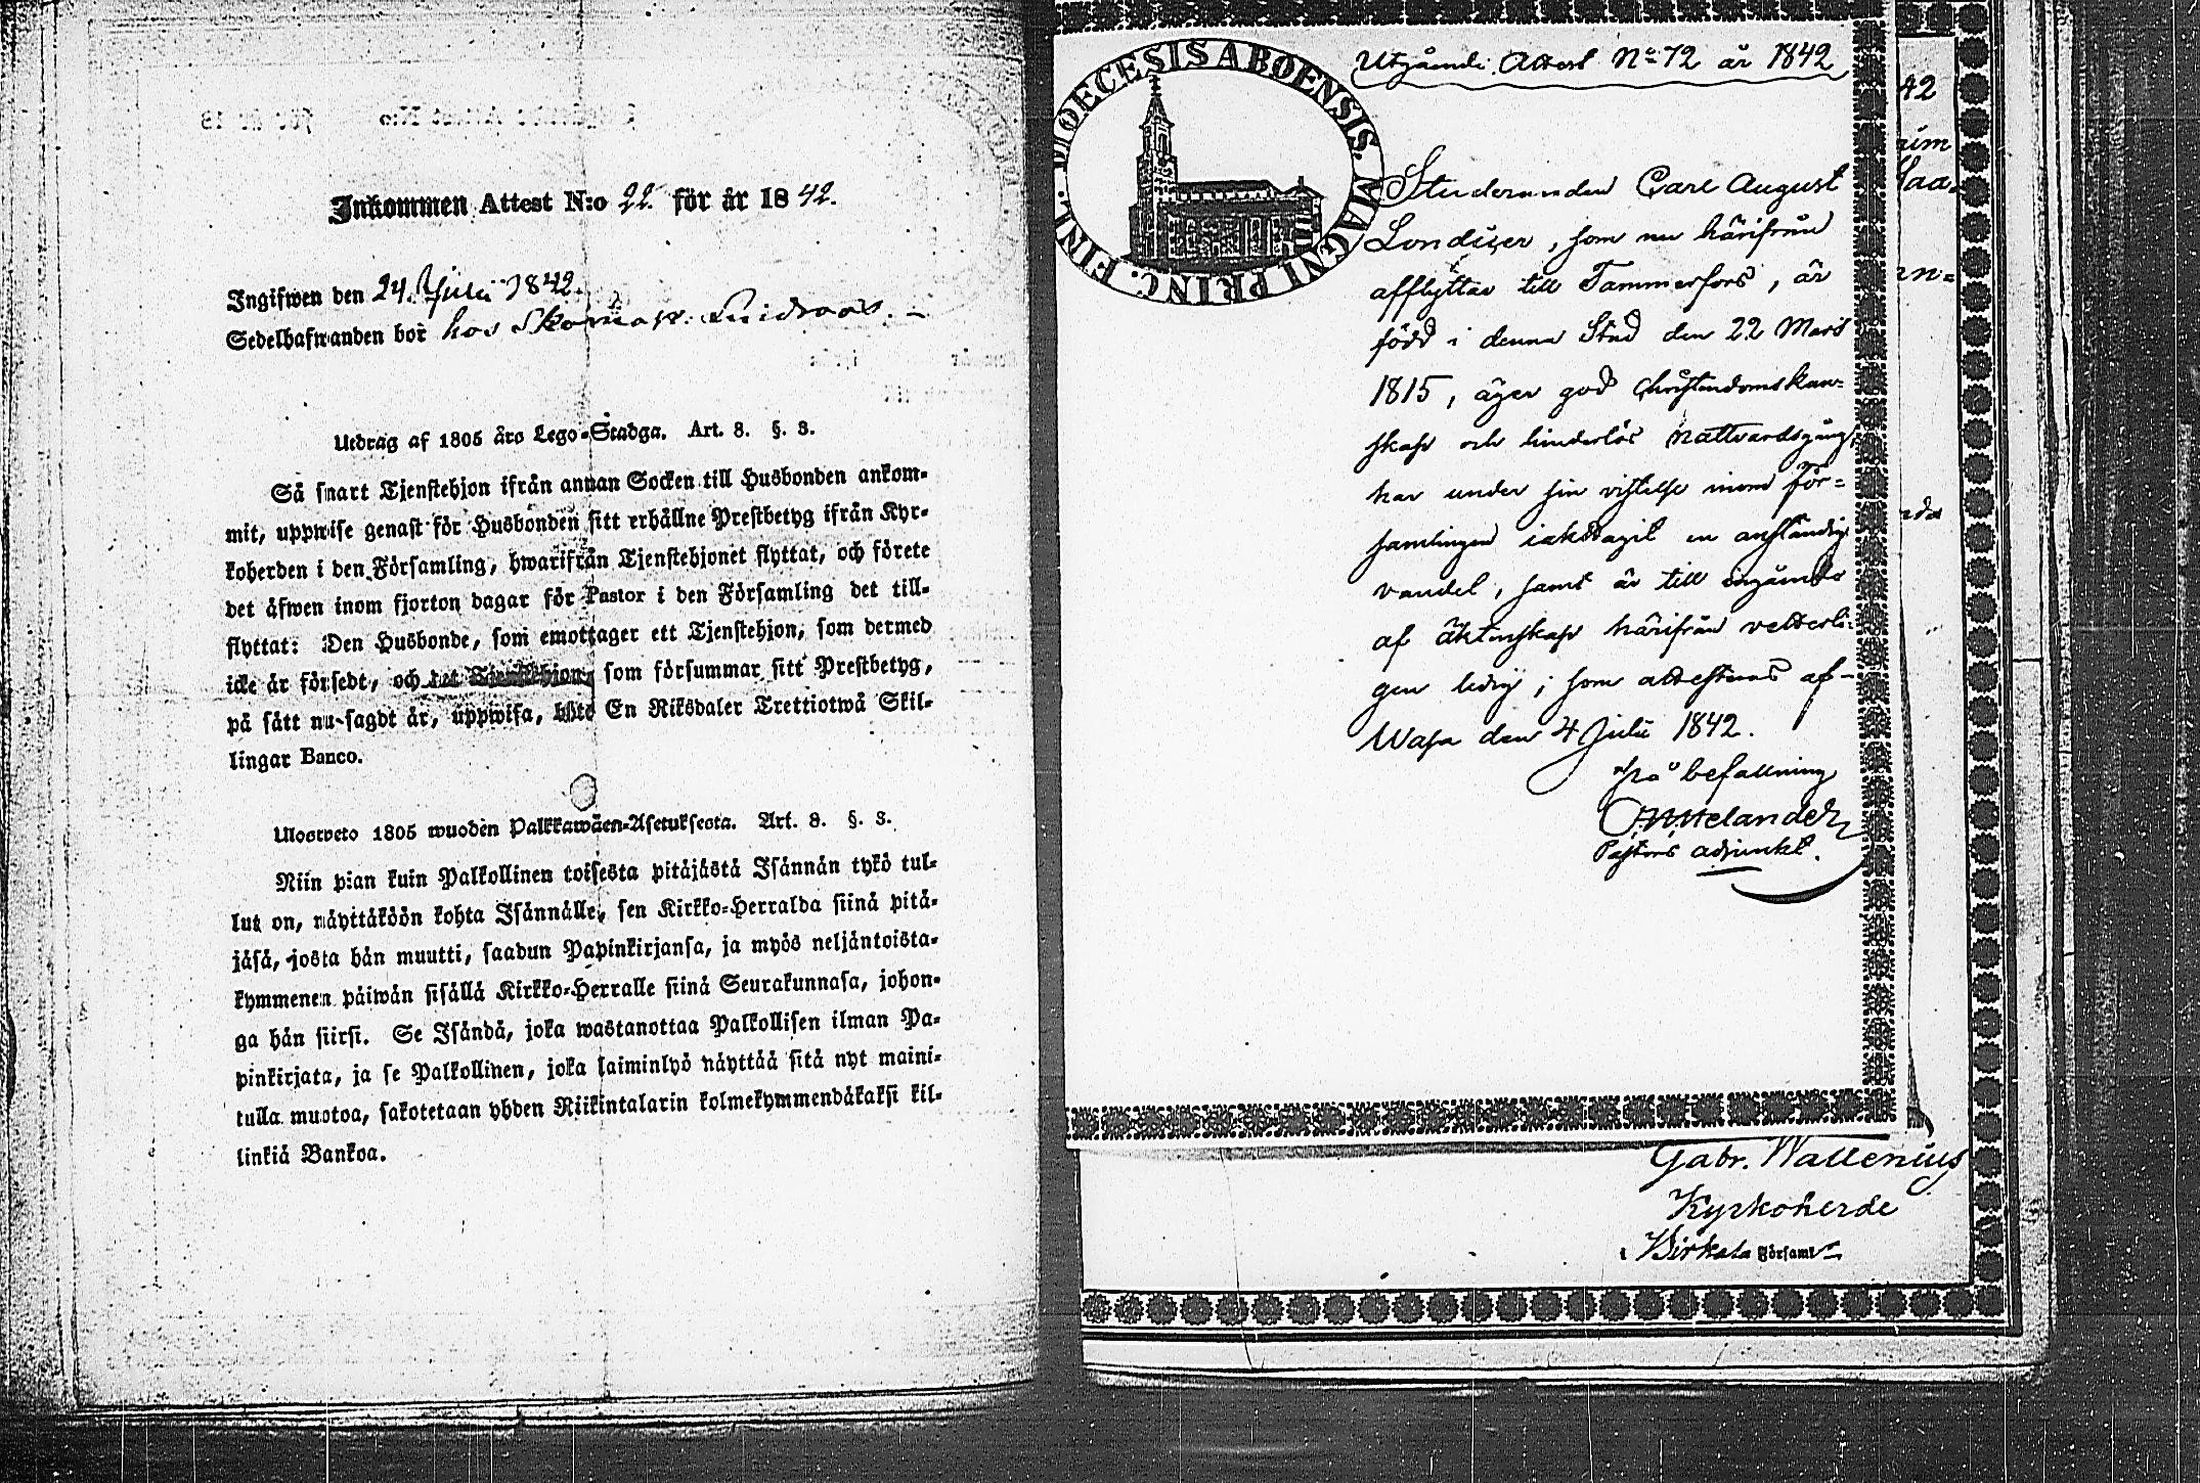 Inkommen Attest N:o 22. för år 1842.
Ingifwen den 24. Julii 1842.
Sedelhafwanden bor hos Skomak.
Utdrag af 1805 års Lego-Stadga. Art. 8. §. 3.
Så snart Tjenstehjon ifrån annan Socken till Husbonden ankom-
mit, uppwise genast för Husbonden sitt erhållne Prestbetyg ifrån Kyr-
koherden i den Församling, hwarifrån Tjenstehjonet flyttat, och förete
det äfwen inom fjorton dagar för Pastor i den Församling det till-
flyttat: Den Husbonde, som emottager ett Tjenstehjon, som dermed
icke är försedt, och det Tjenstehjon, som försummar sitt Prestbetyg,
på sätt nu sagdt är, uppwisa, böte En Riksdaler Trettiotwå Skil-
lingar Banco.
Ulosweto 1805 wuoden Palkkawäen-Asetuksesta. Art. 8. §. 3.
Niin pian kuin Palkollinen toisesta pitäjästä Isännän tykö tul-
lut on, näyttäköön kohta Isännälle, sen Kirkko-Herralda siinä pitä-
jäsä, josta hän muutti, saadun Papinkirjansa, ja myös neljäntoista-
kymmenen päiwän sisällä Kirkko-Herralle siinä Seurakunnasa, johon-
ga hän siirsi. Se Isändä, joka wastanottaa Palkollisen ilman Pa-
pinkirjata, ja se Palkollinen, joka laiminlyö näyttää sitä nyt maini-
tulla muotoa, sakotetaan yhden Riikintalarin kolmekymmendäkaksi kil-
linkiä Bankoa.
DIOECESIS ABOENSIS. MAGNI PRINC. FINL.
Utgående Attest No 72 år 1842
Studeranden Carl August
Londicer, som nu härifrån
afflyttar till Tammerfors, är
född i denna Stad den 22 Mars
1815, äger god Christendomskun-
skap och hinderlös nattvardsgång,
har under sin vistelse inom för-
samlingen iakttagit en anständig
vandel, samt är till ingående
af äktenskap härifrån vetterli-
gen ledig; som attesteras af
Wasa den 4 Julii 1842.
på befallning
Pastors adjunkt.
42
Gabr. Wallenius
Kyrkoherde
i Birkala Församl